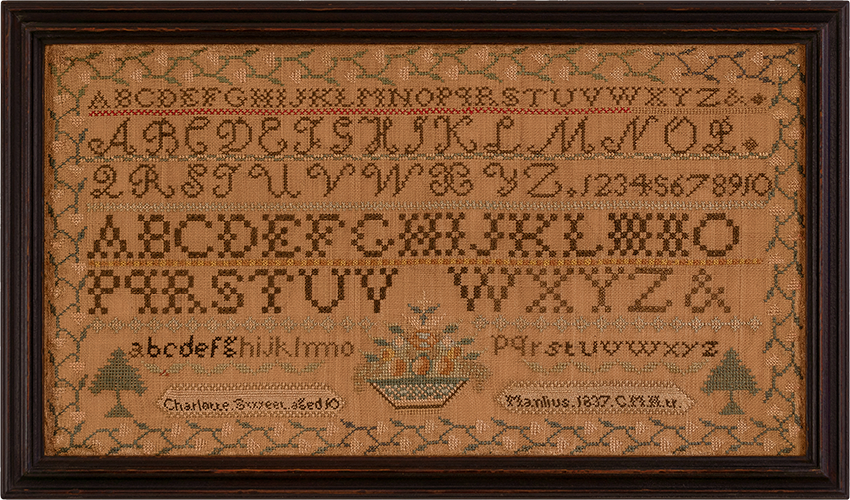 ABCDEFGHIJKLMNOPQRSTUVWXYZ&
ABCDEFGHIJKLMNOP.
QRSTUVWXYZ.12345678910
ABCDEFGHIJKLMNO
PQRSTUV WXYZ&
abcdefghijklmno pqrstuvwxyz
Charlotte Sweet aged 10 Manlius.1837.